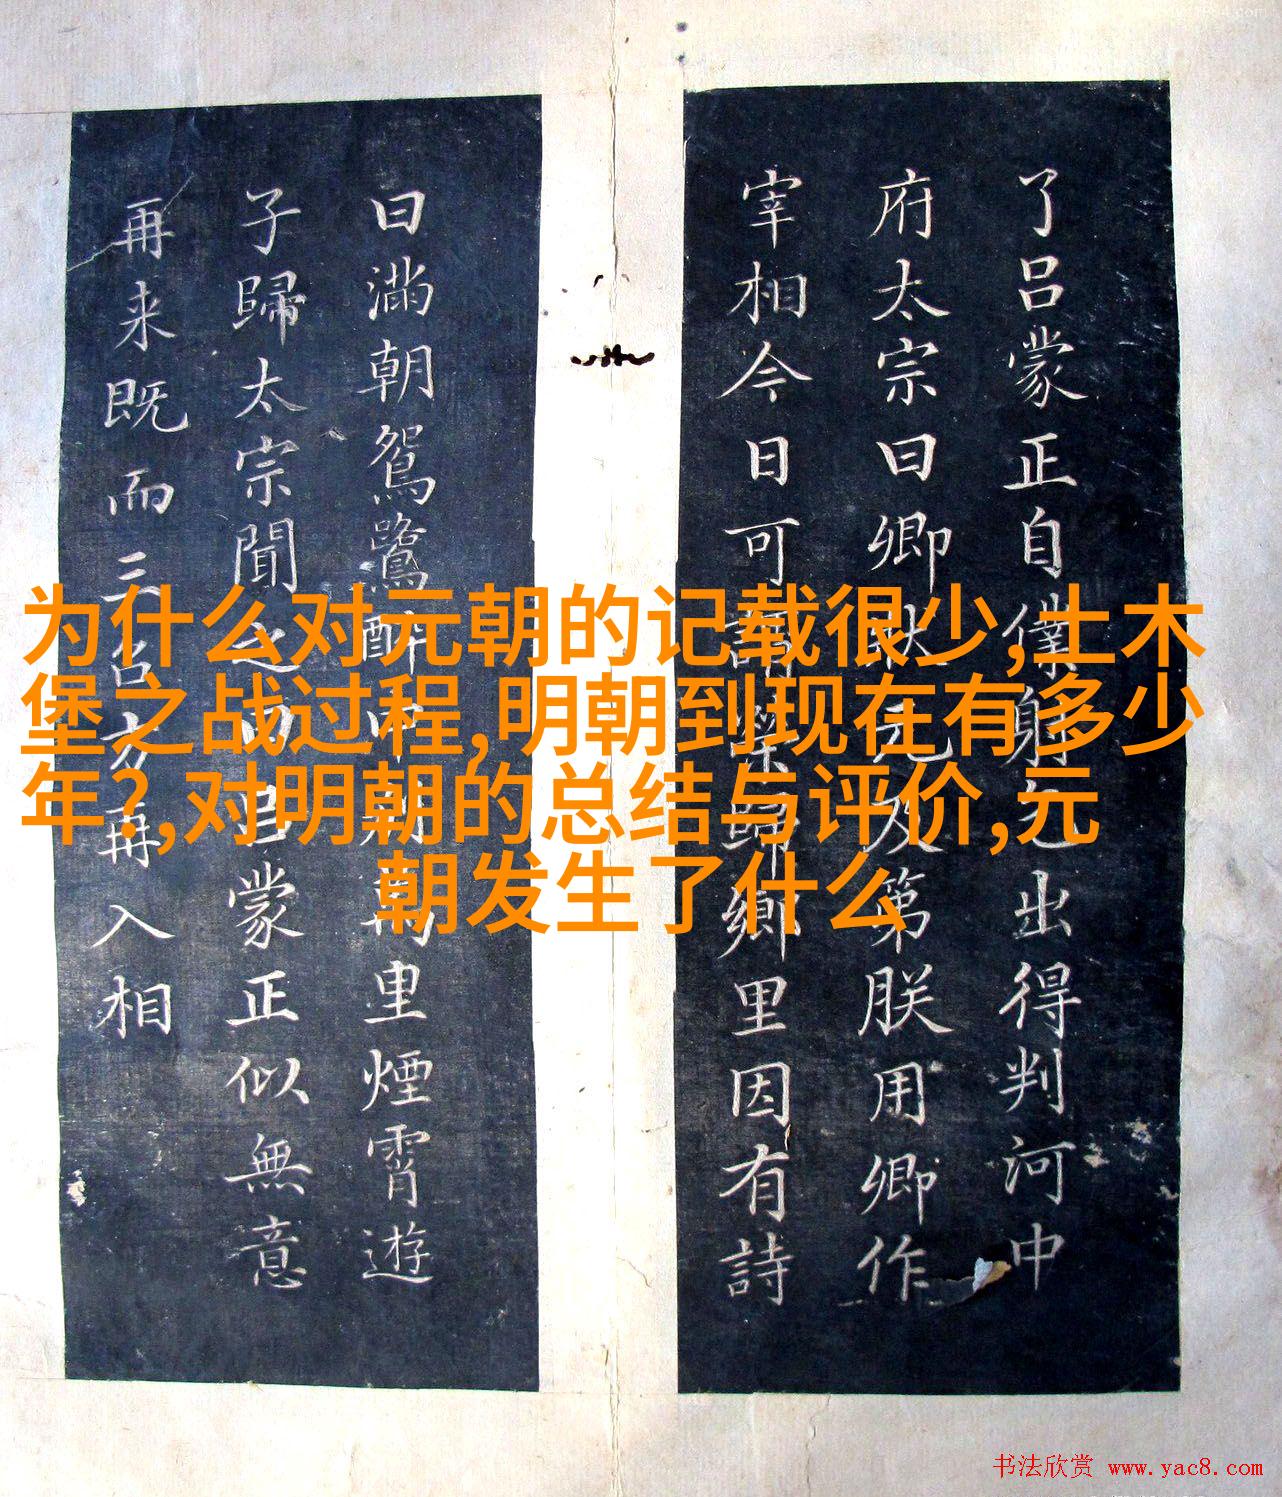 了吕蒙正自僕射乞出得判河中
府太宗曰卿狀元及第朕用卿作
宰相今日可謂榮歸鄉里因有詩
曰滿朝鴛鷺醉中別萬里煙霄遊
子歸太宗聞之曰吕蒙正似無意
再来既而三召方再入相
为什么对元朝的记载很少,土木
堡之战过程,明朝到现在有多少
年?,对明朝的总结与评价,元
朝发生了什么
书法欣赏 www.yac8.com